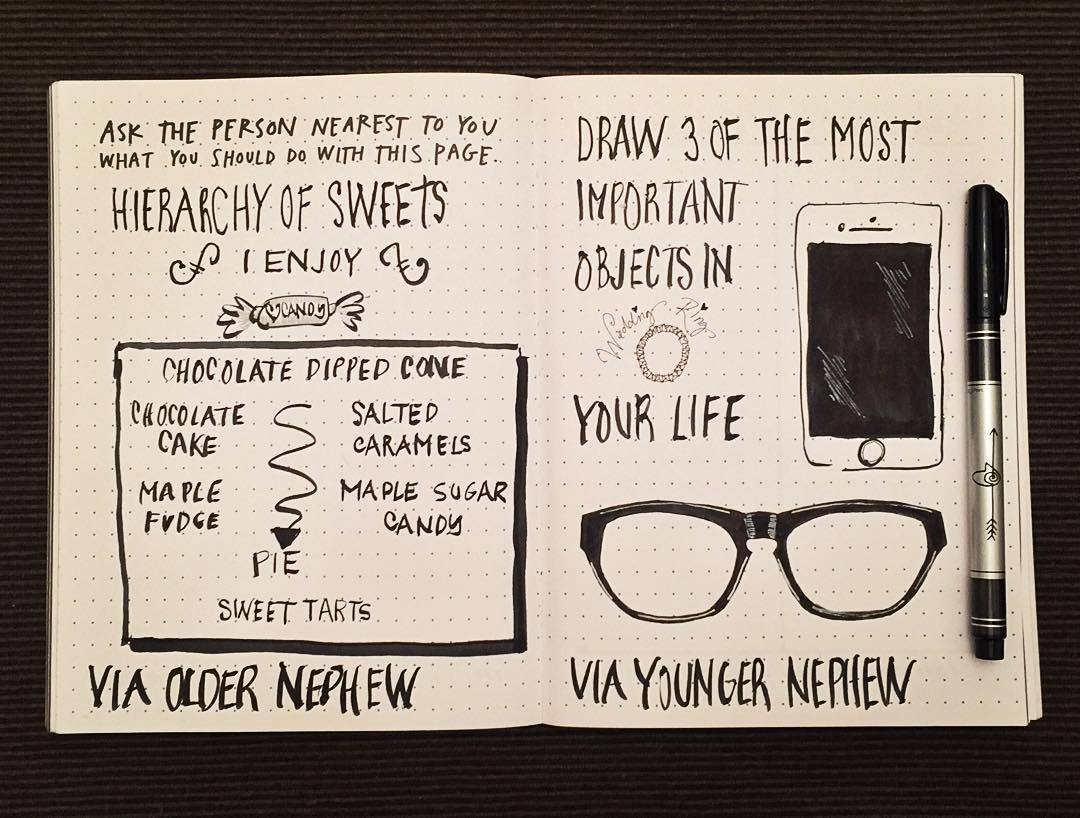 ASK THE PERSON NEAREST TO YOU
WHAT YOU SHOULD DO WITH THIS PAGE.
HIERARCHY OF SWEETS
I ENJOY
CANDY
CHOCOLATE DIPPED CONE
CHOCOLATE
CAKE
SALTED
CARAMELS
MAPLE
FUDGE
MAPLE SUGAR
CANDY
PIE
SWEET TARTS
VIA OLDER NEPHEW
DRAW 3 OF THE MOST
IMPORTANT
OBJECTS IN
Wedding Ring
YOUR LIFE
VIA YOUNGER NEPHEW